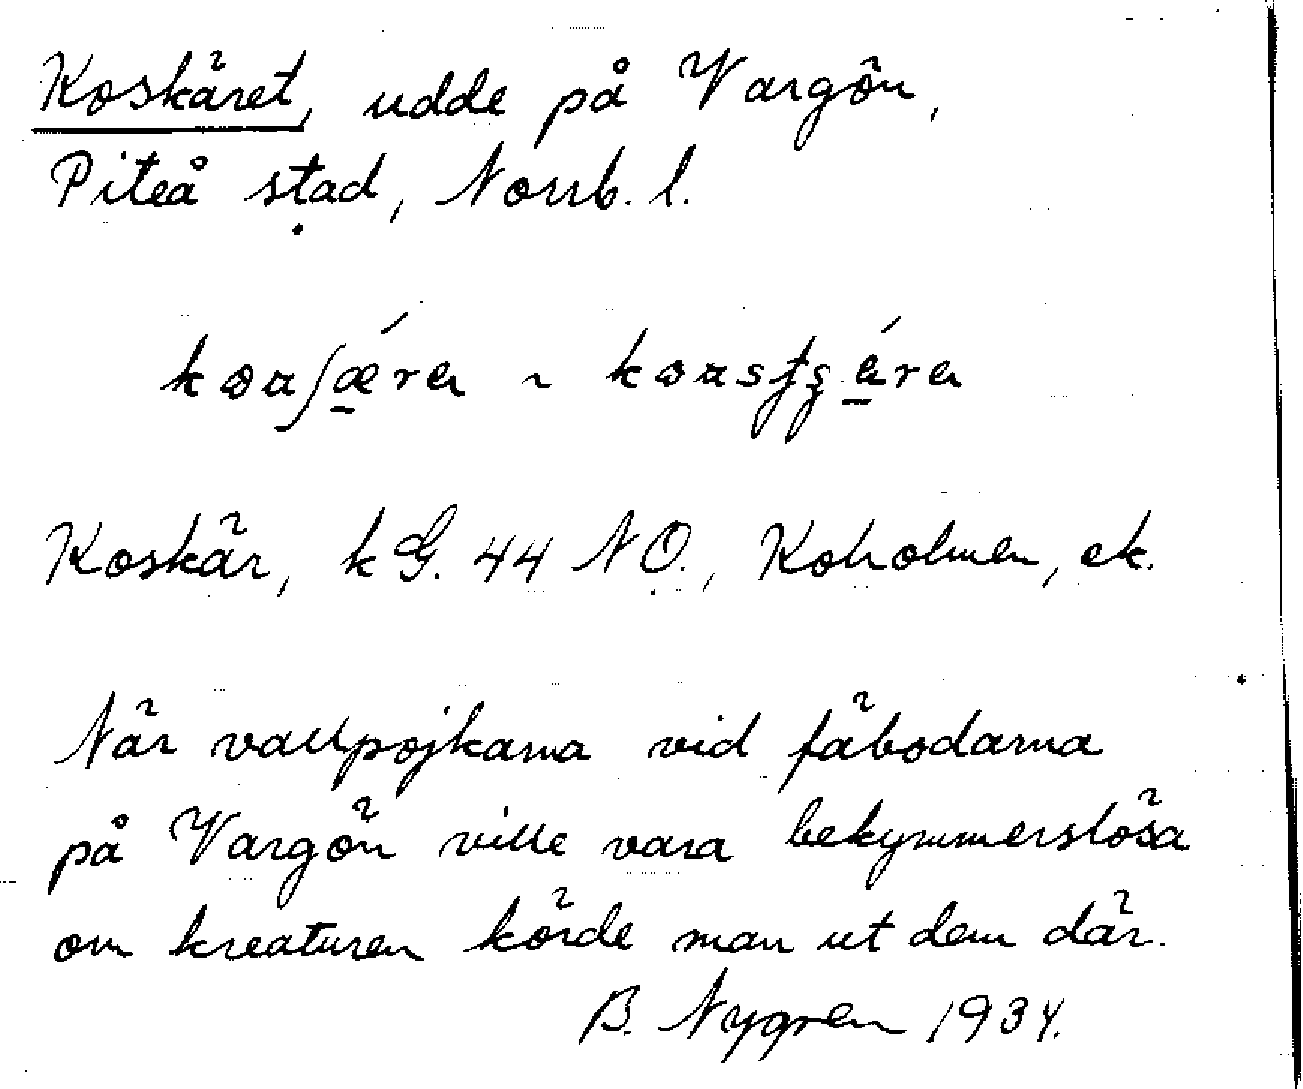 Koskäret, udde på Vargön,
Piteå stad, Norrb. l.
Koskär, k G. 44 NO., Koholmen, ek.
När vallpojkarna vid fäbodarna
på Vargön ville vara bekymmerslösa
om kreaturen körde man ut dem där.
B. Nygren 1934.